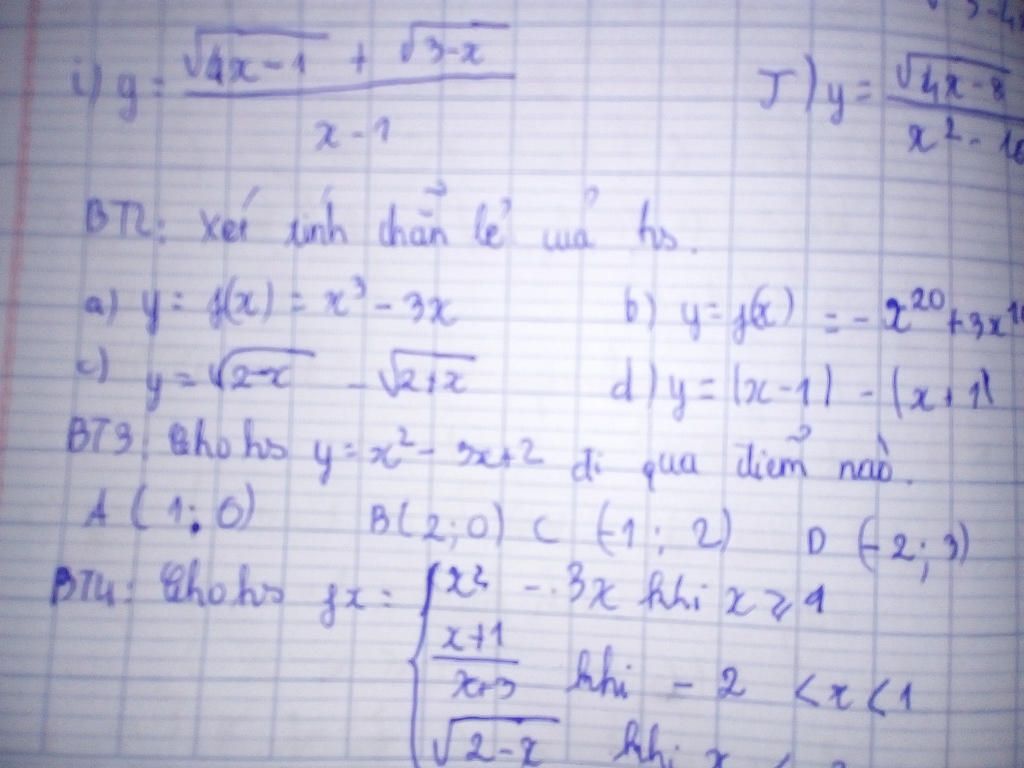 i) y = (√(4x-1) + √(3-x))/(x-1) J) y = √(4x-8)/(x² - 16
BT2: Xét tính chẵn lẻ của hs.
a) y = f(x) = x³ - 3x b) y = f(x) = - x²⁰ + 3x
c) y = √(2-x) - √(2+x) d) y = |x-1| - |x+1|
BT3: Cho hs y = x² - 3x+2 đi qua điểm nào.
A (1; 0) B(2; 0) C (-1; 2) D (-2; 3)
BT4: Cho hs fx = { x² - 3x khi x ≥ 1
(x+1)/(x+3) khi - 2 < x < 1
√(2-x) khi x